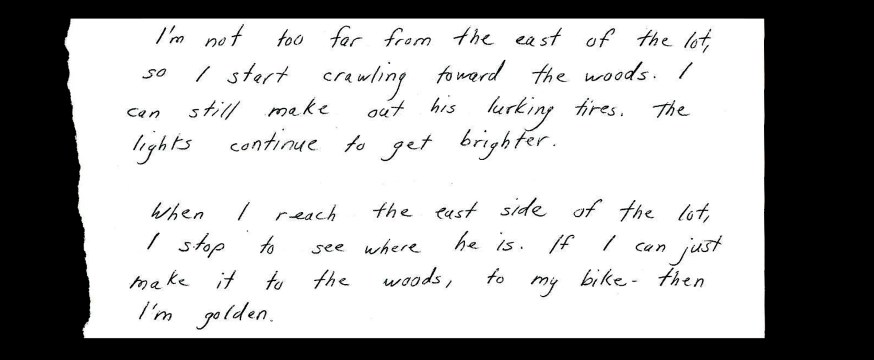 I'm not too far from the east of the lot,
so I start crawling toward the woods. I
can still make out his lurking tires. The
lights continue to get brighter.
When I reach the east side of the lot,
I stop to see where he is. If I can just
make it to the woods, to my bike- then
I'm golden.